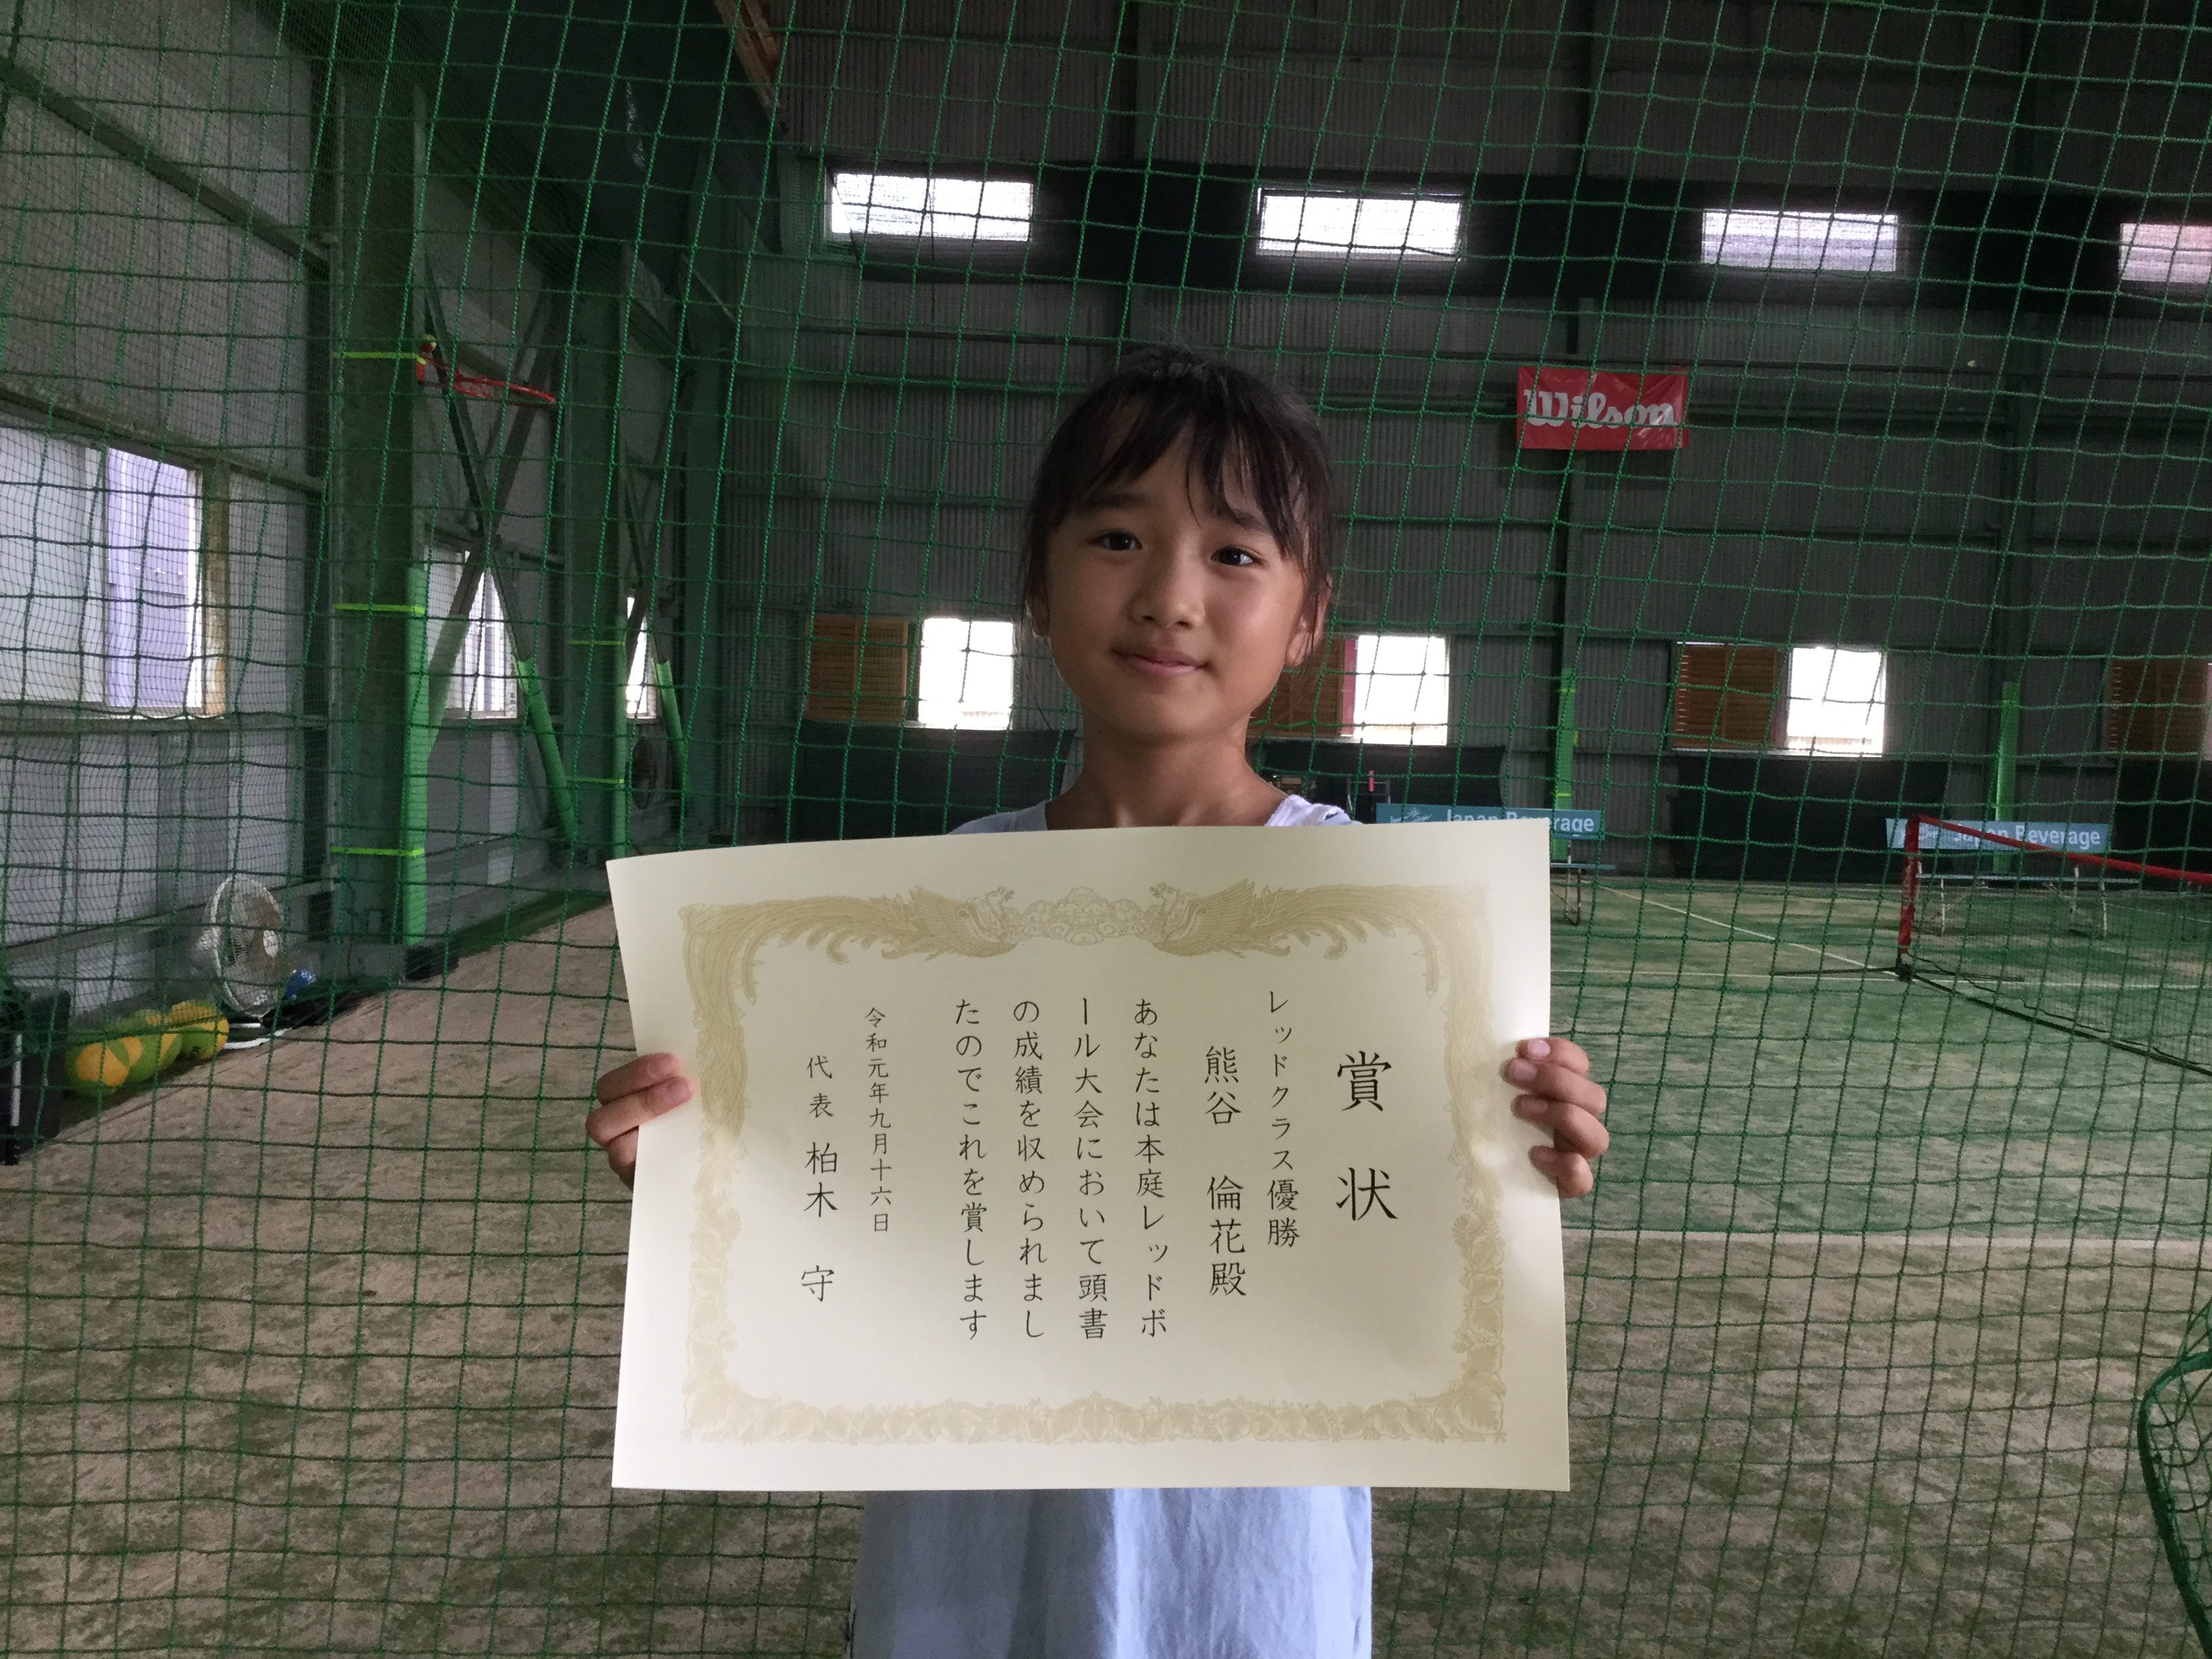 賞状
レッドクラス優勝
熊谷 倫花殿
あなたは本庭レッドボ
ール大会において頭書
の成績を収められまし
たのでこれを賞します
令和元年九月十六日
代表 柏木 守
Wilson
Japan Beverage
Japan Beverage